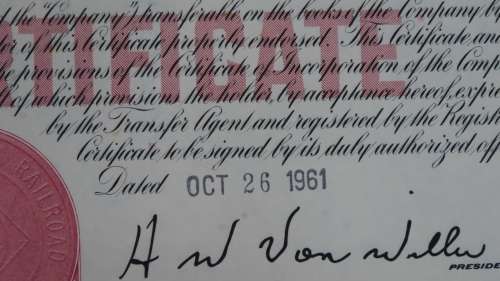 d the "Company") transferable on the books of the Company b
er of this Certificate properly endorsed. This Certificate and
he provisions of the Certificate of Incorporation of the Compan
of which provisions the holder, by acceptance hereof, expre
by the Transfer Agent and registered by the Registr
Certificate to be signed by its duly authorized off
TIFICATE
Dated OCT 26 1961
H W Von Willer
PRESIDE
RAILROAD